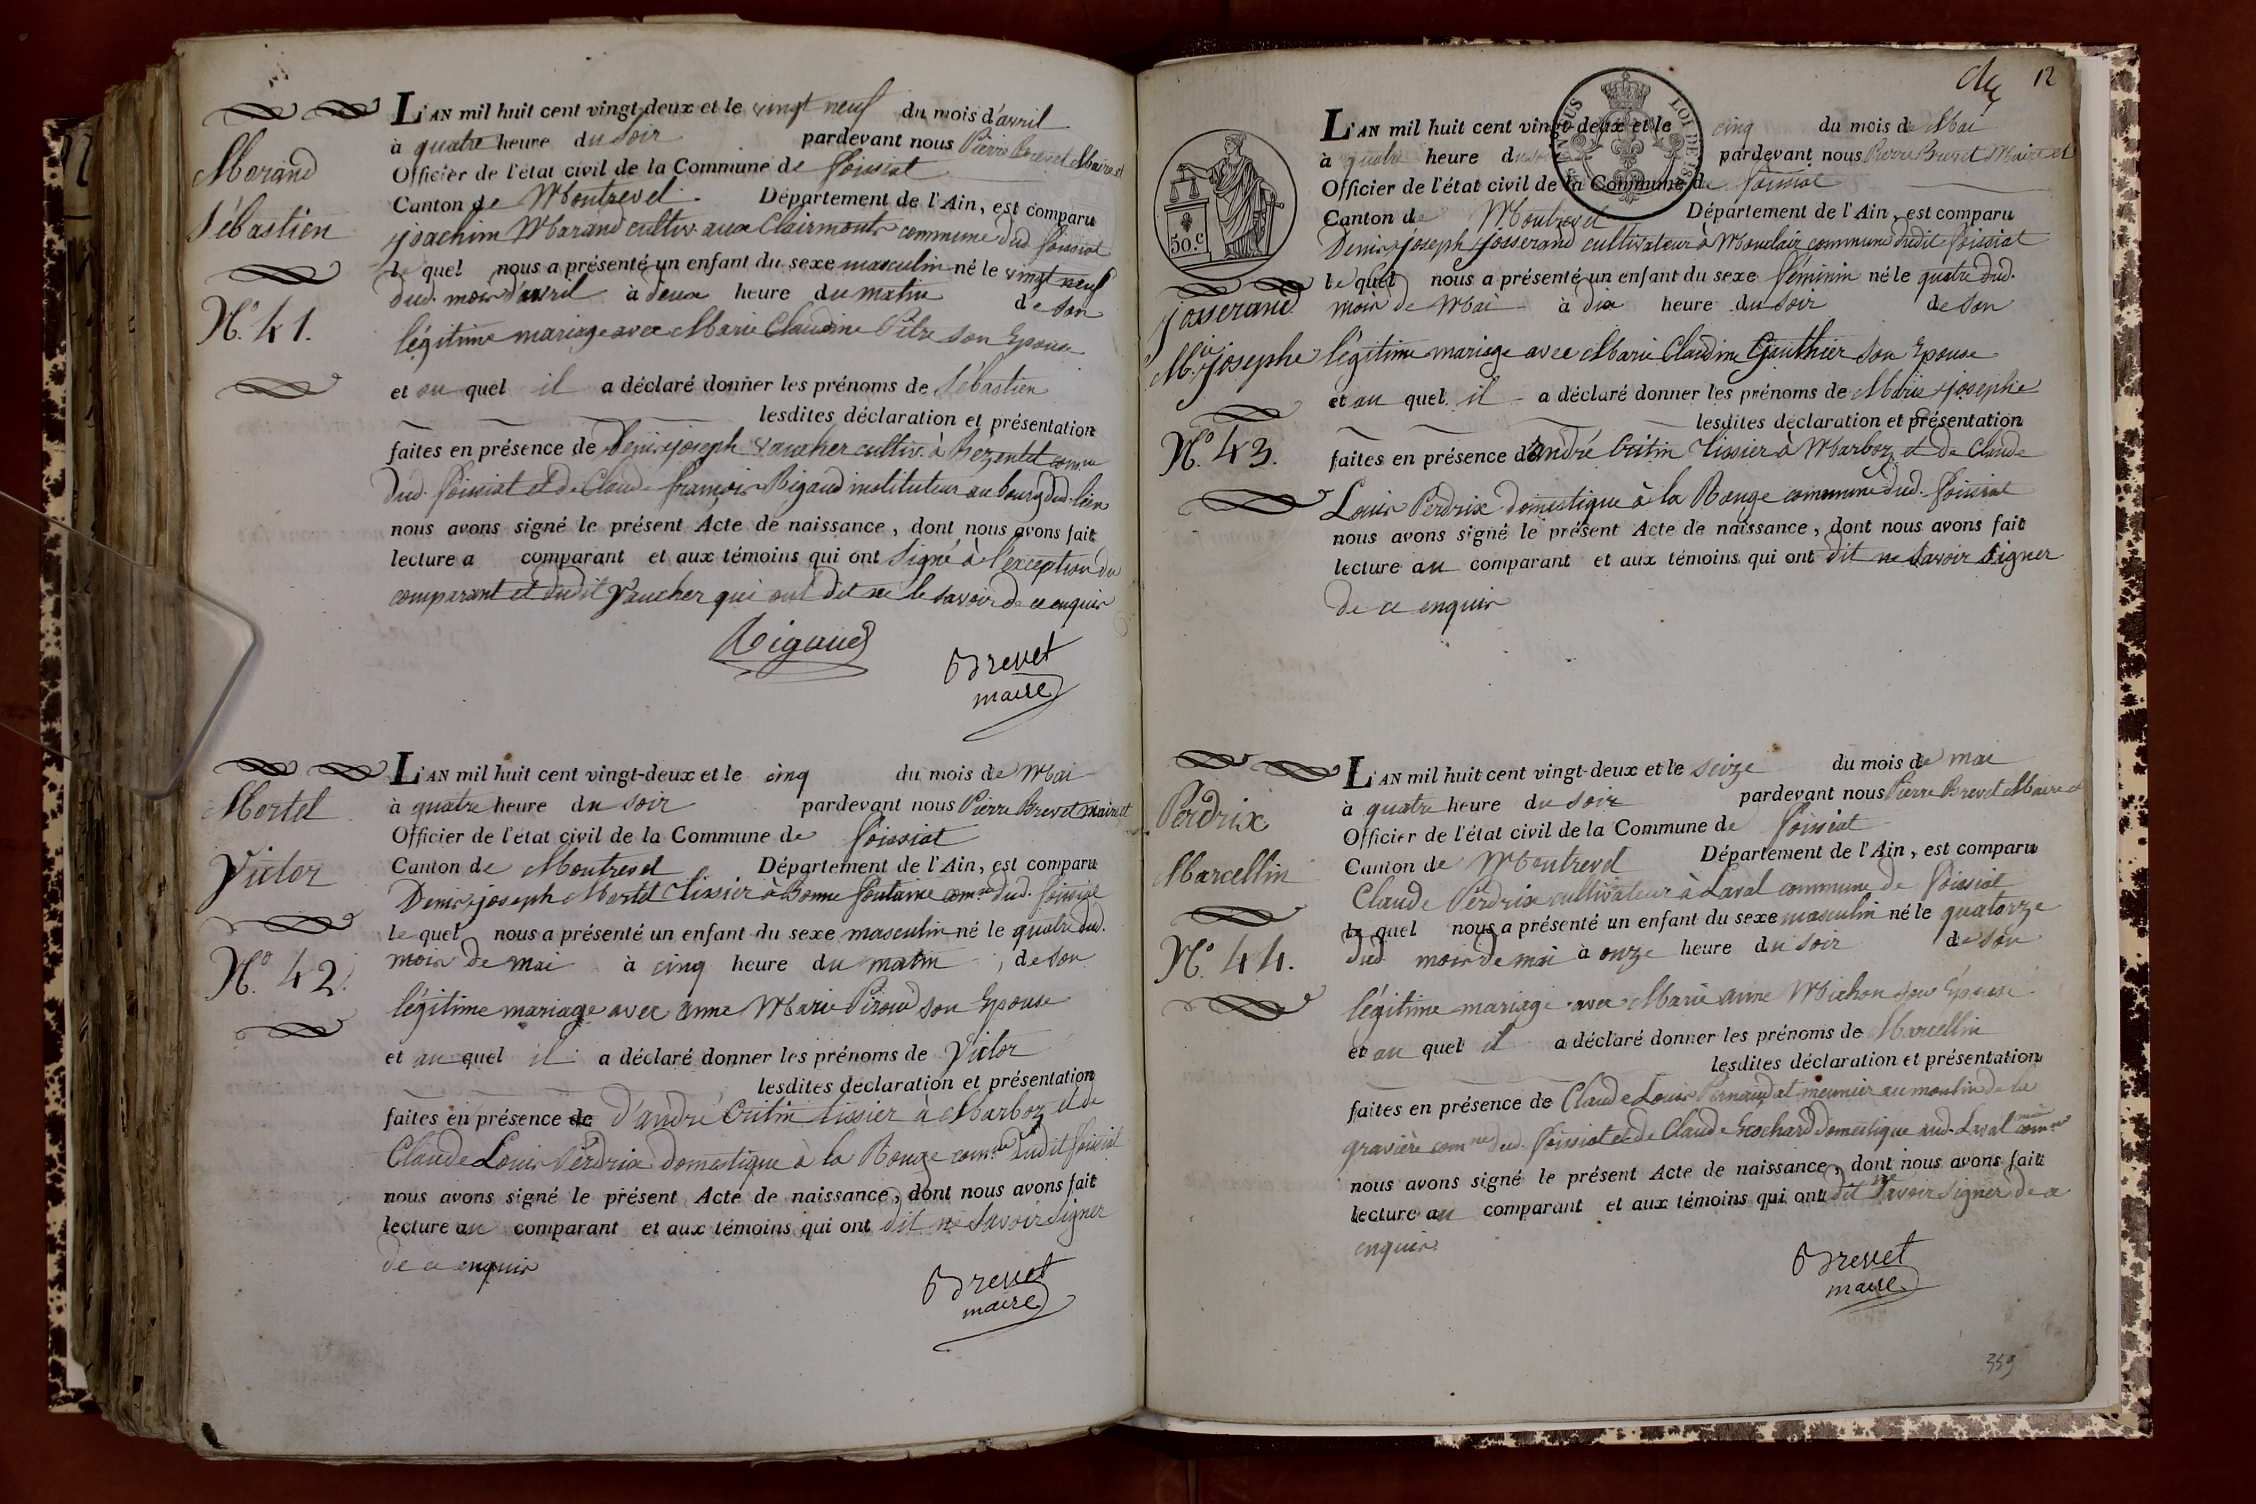 Morand
Sébastien
N.° 41.
L'AN mil huit cent vingt-deux et le vingt neuf du mois d'avril
à quatre heure du soir pardevant nous Pierre Brevet Maire et
Officier de l'état civil de la Commune de Foissiat
Canton de Montrevel. Département de l'Ain, est comparu
joachim Marand cultiv. aux Clairmonts commune dud. foissiat
le quel nous a présenté un enfant du sexe masculin né le vingt neuf
dud. mois d'avril à deux heure du matin de son
légitime mariage avec Marie Claudine Pitre son Epouse
et au quel il a déclaré donner les prénoms de Sébastien
lesdites déclaration et présentation
faites en présence de Denis joseph Vaucher cultiv. à comne
dud. foissiat et de Claude françois Rigaud instituteur au bourg dud. lieu
nous avons signé le présent Acte de naissance, dont nous avons fait
lecture a comparant et aux témoins qui ont signé à l'exception du
comparant et dudit Vaucher qui ont dit ne le savoir de ce enquis
Rigaud
Brevet
maire
Mortel
Victor
N.° 42.
L'AN mil huit cent vingt-deux et le cinq du mois de Mai
à quatre heure du soir pardevant nous Pierre Brevet maire et
Officier de l'état civil de la Commune de foissiat
Canton de Montrevel Département de l'Ain, est comparu
Denis joseph Mortel tissier à Bonne fontaine comne dud. foissiat
le quel nous a présenté un enfant du sexe masculin né le quatre dud.
mois de mai à cinq heure du matin, de son
légitime mariage avec anne Marie Piroud son Epouse
et au quel il a déclaré donner les prénoms de Victor
lesdites déclaration et présentation
faites en présence de d'andré Critin tissier à Marboz et de
Claude Louis Perdrix domestique à la Rouge comne dudit foissiat
nous avons signé le présent Acte de naissance, dont nous avons fait
lecture au comparant et aux témoins qui ont dit ne savoir signer
de ce enquis
Brevet
maire
12
LOI DE
50.c
josserand
M.ie josephe
N.° 43.
L'AN mil huit cent vingt-deux et le cinq du mois de Mai
à quatre heure du soir pardevant nous Pierre Brevet Maire et
Officier de l'état civil de la Commune de foissiat
Canton de Montrevel Département de l'Ain, est comparu
Denis joseph josserand cultivateur à Monclair commune dudit foissiat
le quel nous a présenté un enfant du sexe féminin né le quatre dud.
mois de Mai à dix heure du soir de son
légitime mariage avec Marie Claudine Gauthier son Epouse
et au quel il a déclaré donner les prénoms de Marie josephe
lesdites déclaration et présentation
faites en présence d'andré Critin tissier à Marboz et de Claude
Louis Perdrix domestique à la Rouge commune dud. foissiat
nous avons signé le présent Acte de naissance, dont nous avons fait
lecture au comparant et aux témoins qui ont dit ne savoir signer
de ce enquis
Perdrix
Marcellin
N.° 44.
L'AN mil huit cent vingt-deux et le seize du mois de mai
à quatre heure du soir pardevant nous Pierre Brevet Maire et
Officier de l'état civil de la Commune de foissiat
Canton de Montrevel Département de l'Ain, est comparu
Claude Perdrix cultivateur à Laval commune de foissiat
le quel nous a présenté un enfant du sexe masculin né le quatorze
dud. mois de mai à onze heure du soir de son
légitime mariage avec Marie anne Michon son Epouse
et au quel il a déclaré donner les prénoms de Marcellin
lesdites déclaration et présentation
faites en présence de Claude Louis Pernaudat meunier au moulin de la
gravière comne dud. foissiat et de Claude Bochard domestique aud. Laval comne
nous avons signé le présent Acte de naissance, dont nous avons fait
lecture au comparant et aux témoins qui ont dit ne savoir signer de ce
enquis
Brevet
maire
359